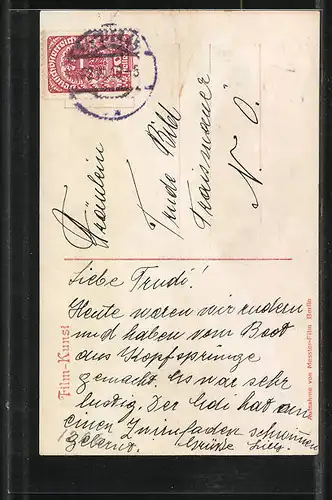 Fräulein
Trude Bild
Traismauer
N. Ö.
Liebe Trudi!
Heute waren wir rudern
und haben vom Boot
aus Kopfsprünge
gemacht. Es war sehr
lustig. Der Edi hat an
einen Zwirnfaden schwimmen
gelernt. Grüße
Film-Kunst
Aufnahme von Messter-Film Berlin